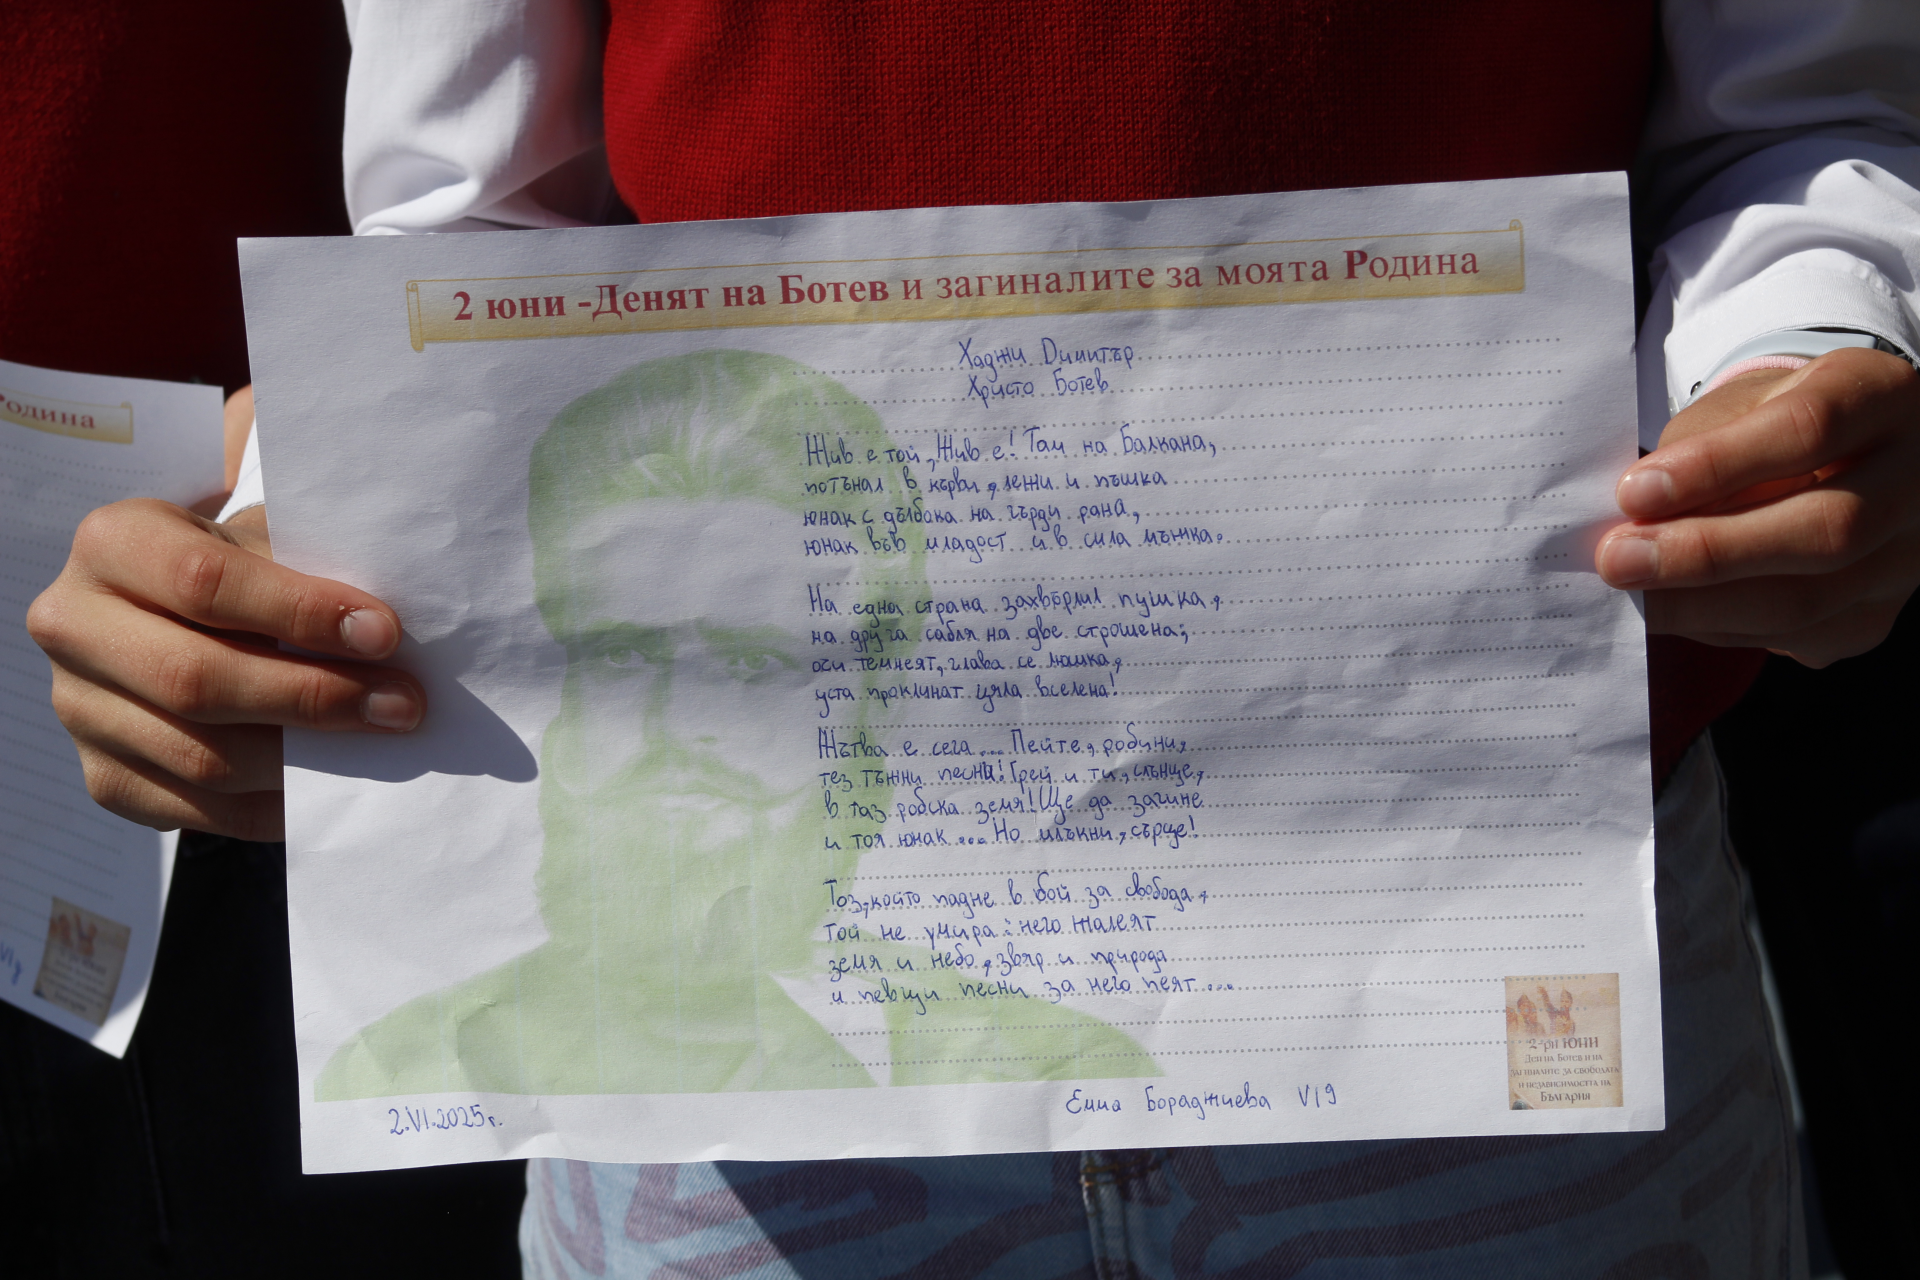 2 юни -Денят на Ботев и загиналите за моята Родина
Хаджи Димитър
Христо Ботев
Жив е той, Жив е! Там на Балкана,
потънал в кърви, лежи и пъшка
юнак с дълбока на гърди рана,
юнак във младост и в сила мъжка.
На една страна захвърлил пушка,
на друга сабля на две строшена;
очи темнеят, глава се люшка,
уста проклинат цяла вселена!
Жътва е сега... Пейте, робини,
тез тъжни песни! Грей и ти, слънце,
в таз робска земя! Ще да загине
и тоя юнак... Но млъкни, сърце!
Тоз, който падне в бой за свобода,
той не умира: него жалеят
земя и небо, звяр и природа
и певци песни за него пеят...
2.VI.2025г.
Емма Бораджиева VI9
2-ри ЮНИ
Ден на Ботев и на
загиналите за свободата
и независимостта на
България
Родина